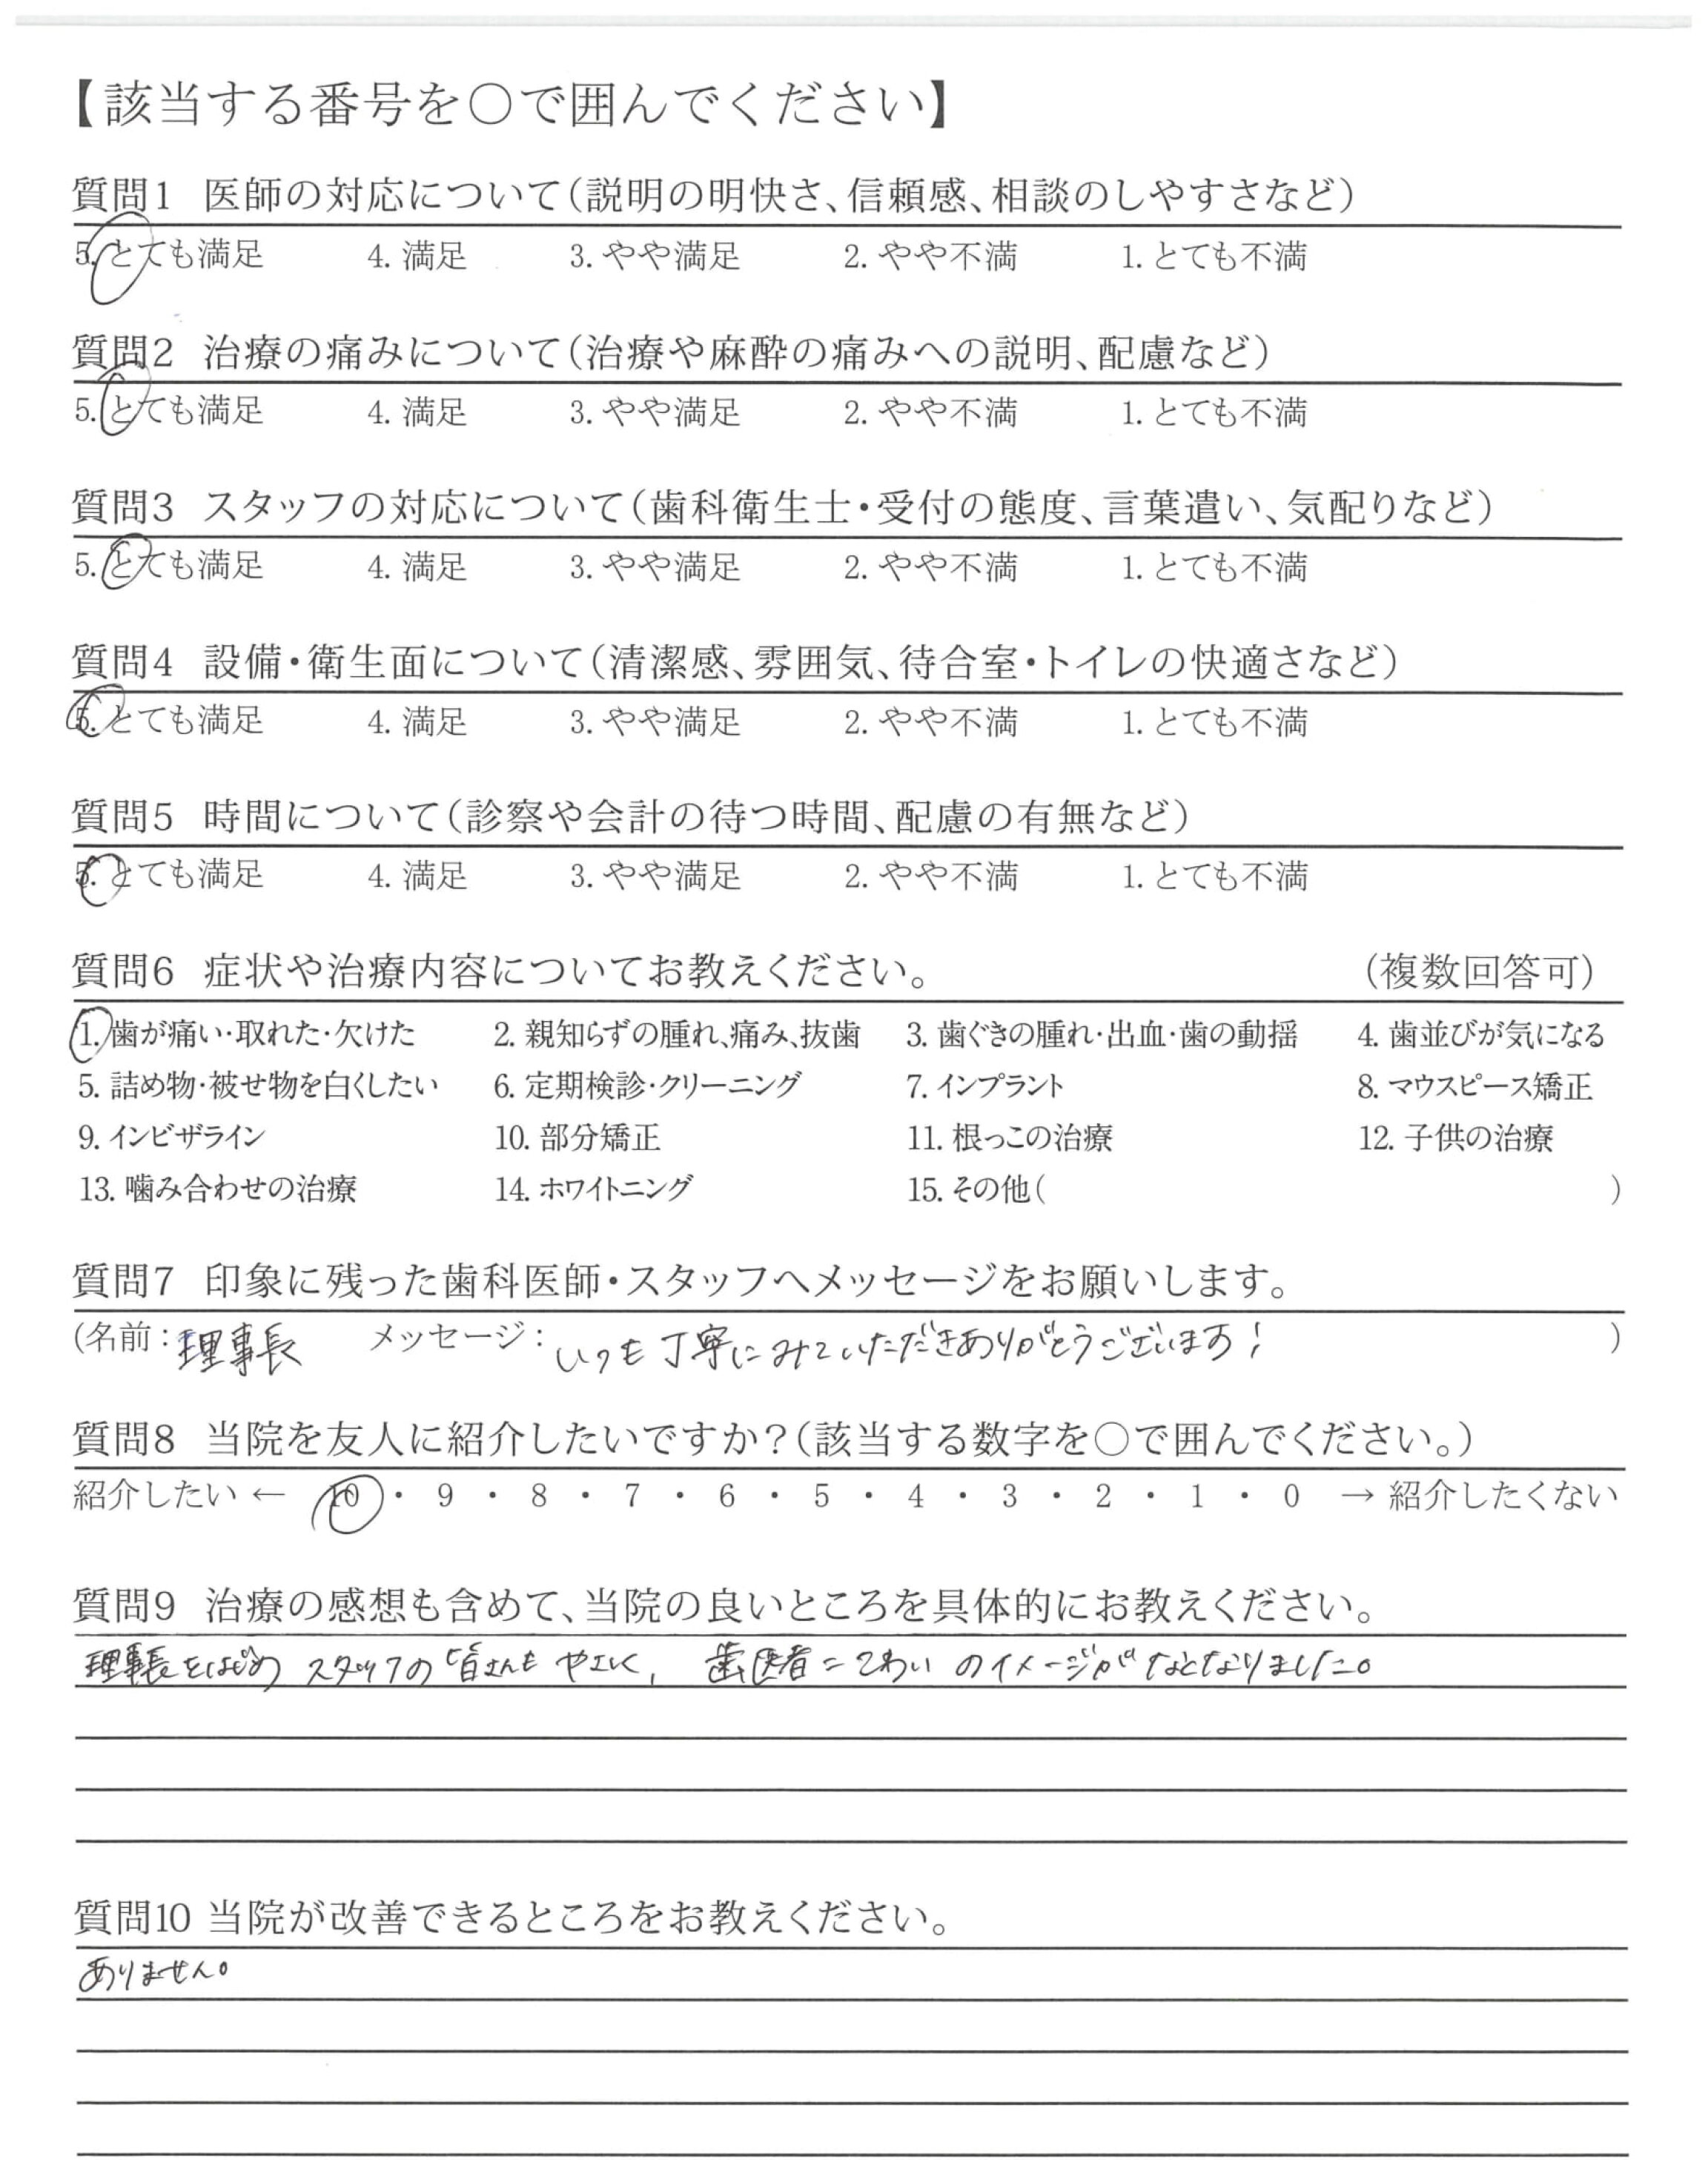 【該当する番号を〇で囲んでください】
質問1 医師の対応について(説明の明快さ、信頼感、相談のしやすさなど)
5. とても満足 4. 満足 3. やや満足 2. やや不満 1. とても不満
質問2 治療の痛みについて(治療や麻酔の痛みへの説明、配慮など)
5. とても満足 4. 満足 3. やや満足 2. やや不満 1. とても不満
質問3 スタッフの対応について(歯科衛生士・受付の態度、言葉遣い、気配りなど)
5. とても満足 4. 満足 3. やや満足 2. やや不満 1. とても不満
質問4 設備・衛生面について(清潔感、雰囲気、待合室・トイレの快適さなど)
5. とても満足 4. 満足 3. やや満足 2. やや不満 1. とても不満
質問5 時間について(診察や会計の待つ時間、配慮の有無など)
5. とても満足 4. 満足 3. やや満足 2. やや不満 1. とても不満
質問6 症状や治療内容についてお教えください。 (複数回答可)
1. 歯が痛い・取れた・欠けた 2. 親知らずの腫れ、痛み、抜歯 3. 歯ぐきの腫れ・出血・歯の動揺 4. 歯並びが気になる
5. 詰め物・被せ物を白くしたい 6. 定期検診・クリーニング 7. インプラント 8. マウスピース矯正
9. インビザライン 10. 部分矯正 11. 根っこの治療 12. 子供の治療
13. 噛み合わせの治療 14. ホワイトニング 15. その他( )
質問7 印象に残った歯科医師・スタッフへメッセージをお願いします。
(名前:理事長 メッセージ:いつも丁寧にみていただきありがとうございます! )
質問8 当院を友人に紹介したいですか?(該当する数字を〇で囲んでください。)
紹介したい ← 10 ・ 9 ・ 8 ・ 7 ・ 6 ・ 5 ・ 4 ・ 3 ・ 2 ・ 1 ・ 0 → 紹介したくない
質問9 治療の感想も含めて、当院の良いところを具体的にお教えください。
理事長をはじめ スタッフの皆さんも やさしく、 歯医者=こわい のイメージが なくなりました。
質問10 当院が改善できるところをお教えください。
ありません。